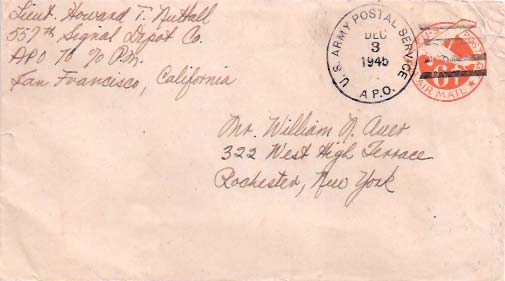 Lieut. Howard T. Nuttall
557th Signal Depot Co.
APO 75 % P.M.
San Francisco, California
U.S. ARMY POSTAL SERVICE
DEC
3
1945
A.P.O.
U.S. POSTAGE
6¢
AIR MAIL
Mr. William N. Auer
322 West High Terrace
Rochester, New York